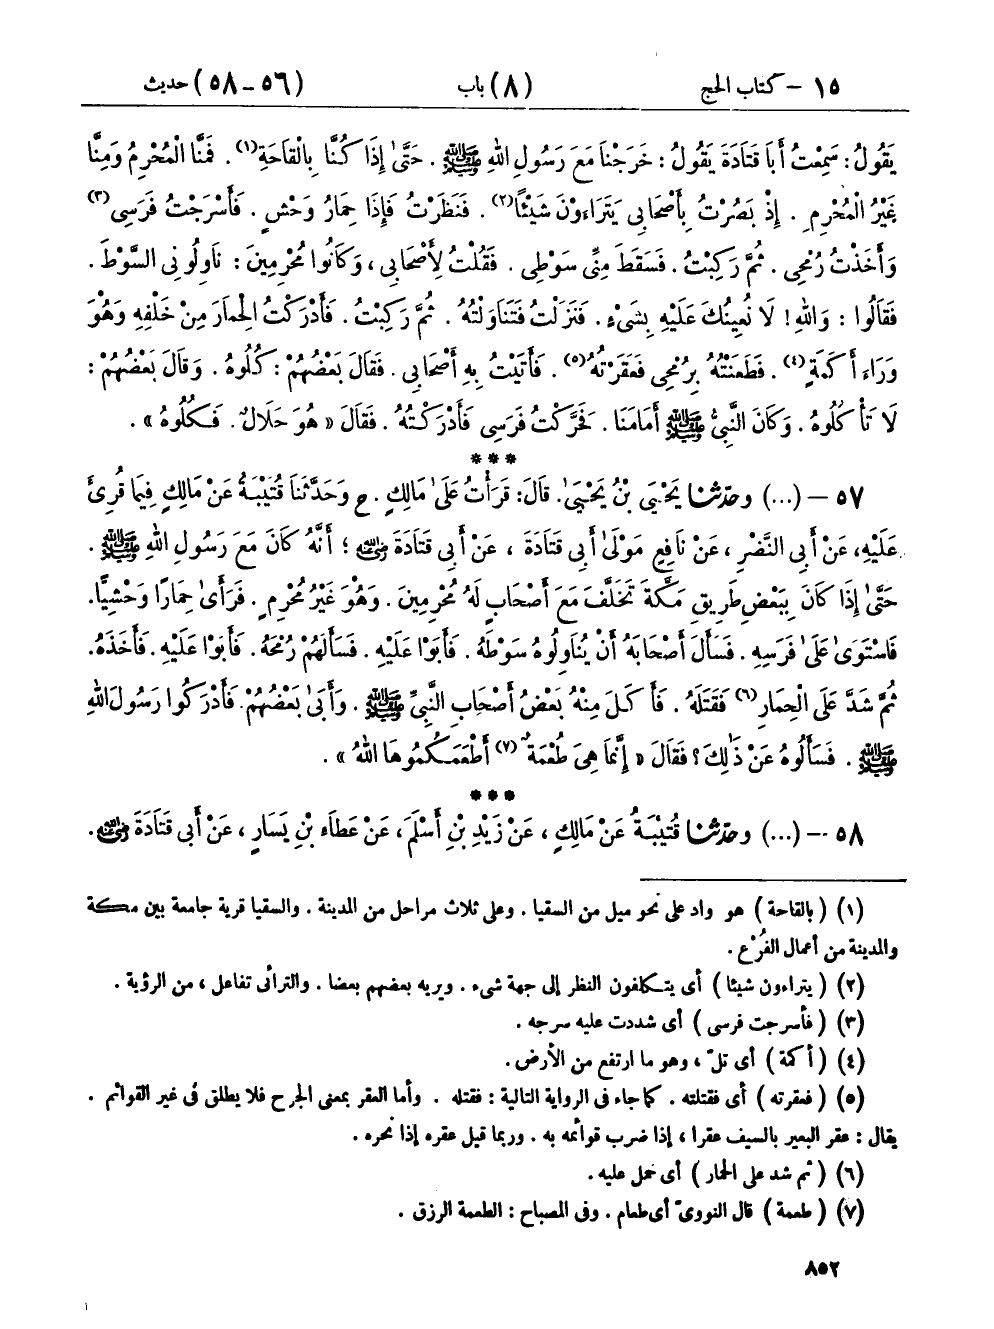 ١٥ – كتاب الحج (٨) باب (٥٦ – ٥٨) حديث
يَقُولُ: سَمِعْتُ أَبَا قَتَادَةَ يَقُولُ: خَرَجْنَا مَعَ رَسُولِ اللهِ ﷺ . حَتَّىٰ إِذَا كُنَّا بِالْقَاحَةِ(١) . فَمِنَّا الْمُحْرِمُ وَمِنَّا
غَيْرُ الْمُحْرِمِ . إِذْ بَصُرْتُ بِأَصْحَابِى يَتَرَاءَوْنَ شَيْئًا(٢) . فَنَظَرْتُ فَإِذَا حِمَارُ وَحْشٍ . فَأَسْرَجْتُ فَرَسِى(٣)
وَأَخَذْتُ رُمْحِى . ثُمَّ رَكِبْتُ . فَسَقَطَ مِنِّى سَوْطِى . فَقُلْتُ لِأَصْحَابِى ، وَكَانُوا مُحْرِمِينَ : نَاوِلُونِى السَّوْطَ .
فَقَالُوا : وَاللهِ! لَا نُعِينُكَ عَلَيْهِ بِشَىْءٍ . فَنَزَلْتُ فَتَنَاوَلْتُهُ . ثُمَّ رَكِبْتُ . فَأَدْرَكْتُ الْحِمَارَ مِنْ خَلْفِهِ وَهُوَ
وَرَاءَ أَكَمَةٍ(٤) . فَطَعَنْتُهُ بِرُمْحِى فَعَقَرْتُهُ(٥) . فَأَتَيْتُ بِهِ أَصْحَابِى . فَقَالَ بَعْضُهُمْ: كُلُوهُ . وَقَالَ بَعْضُهُمْ:
لَا تَأْكُلُوهُ . وَكَانَ النَّبِىُّ ﷺ أَمَامَنَا . فَحَرَّكْتُ فَرَسِى فَأَدْرَكْتُهُ . فَقَالَ « هُوَ حَلَالٌ . فَكُلُوهُ » .
***
٥٧ – (...) وحدّثنا يَحْيَىٰ بْنُ يَحْيَىٰ. قَالَ: قَرَأْتُ عَلَىٰ مَالِكٍ . ح وَحَدَّثَنَا قُتَيْبَةُ عَنْ مَالِكٍ فِيمَا قُرِئَ
عَلَيْهِ، عَنْ أَبِى النَّضْرِ ، عَنْ نَافِعٍ مَوْلَىٰ أَبِى قَتَادَةَ ، عَنْ أَبِى قَتَادَةَ رضي الله عنه ؛ أَنَّهُ كَانَ مَعَ رَسُولِ اللهِ ﷺ .
حَتَّىٰ إِذَا كَانَ بِبَعْضِ طَرِيقِ مَكَّةَ تَخَلَّفَ مَعَ أَصْحَابٍ لَهُ مُحْرِمِينَ . وَهُوَ غَيْرُ مُحْرِمٍ . فَرَأَىٰ حِمَارًا وَحْشِيًّا.
فَاسْتَوَىٰ عَلَىٰ فَرَسِهِ . فَسَأَلَ أَصْحَابَهُ أَنْ يُنَاوِلُوهُ سَوْطَهُ . فَأَبَوْا عَلَيْهِ . فَسَأَلَهُمْ رُمْحَهُ . فَأَبَوْا عَلَيْهِ . فَأَخَذَهُ.
ثُمَّ شَدَّ عَلَى الْحِمَارِ(٦) فَقَتَلَهُ . فَأَكَلَ مِنْهُ بَعْضُ أَصْحَابِ النَّبِىِّ ﷺ . وَأَبَىٰ بَعْضُهُمْ. فَأَدْرَكُوا رَسُولَ اللهِ
ﷺ . فَسَأَلُوهُ عَنْ ذَٰلِكَ؟ فَقَالَ « إِنَّمَا هِىَ طُعْمَةٌ(٧) أَطْعَمَكُمُوهَا اللهُ » .
***
٥٨ – (...) وحدّثنا قُتَيْبَةُ عَنْ مَالِكٍ ، عَنْ زَيْدِ بْنِ أَسْلَمَ، عَنْ عَطَاءِ بْنِ يَسَارٍ ، عَنْ أَبِى قَتَادَةَ رضي الله عنه.
(١) ( بالقاحة ) هو واد على نحو ميل من السقيا . وعلى ثلاث مراحل من المدينة . والسقيا قرية جامعة بين مكة
والمدينة من أعمال الفُرْع .
(٢) ( يتراءون شيئا ) أى يتكلفون النظر إلى جهة شىء . ويريه بعضهم بعضا . والترائى تفاعل ، من الرؤية .
(٣) ( فأسرجت فرسى ) أى شددت عليه سرجه .
(٤) ( أكمة ) أى تلّ ، وهو ما ارتفع من الأرض.
(٥) ( فعقرته ) أى فقتلته . كما جاء فى الرواية التالية : فقتله . وأما العقر بمعنى الجرح فلا يطلق فى غير القوائم .
يقال : عقر البعير بالسيف عقرا ، إذا ضرب قوائمه به . وربما قيل عقره إذا نحره .
(٦) ( ثم شد على الحمار ) أى حمل عليه .
(٧) ( طعمة ) قال النووىّ أى طعام . وفى المصباح : الطعمة الرزق .
٨٥٢